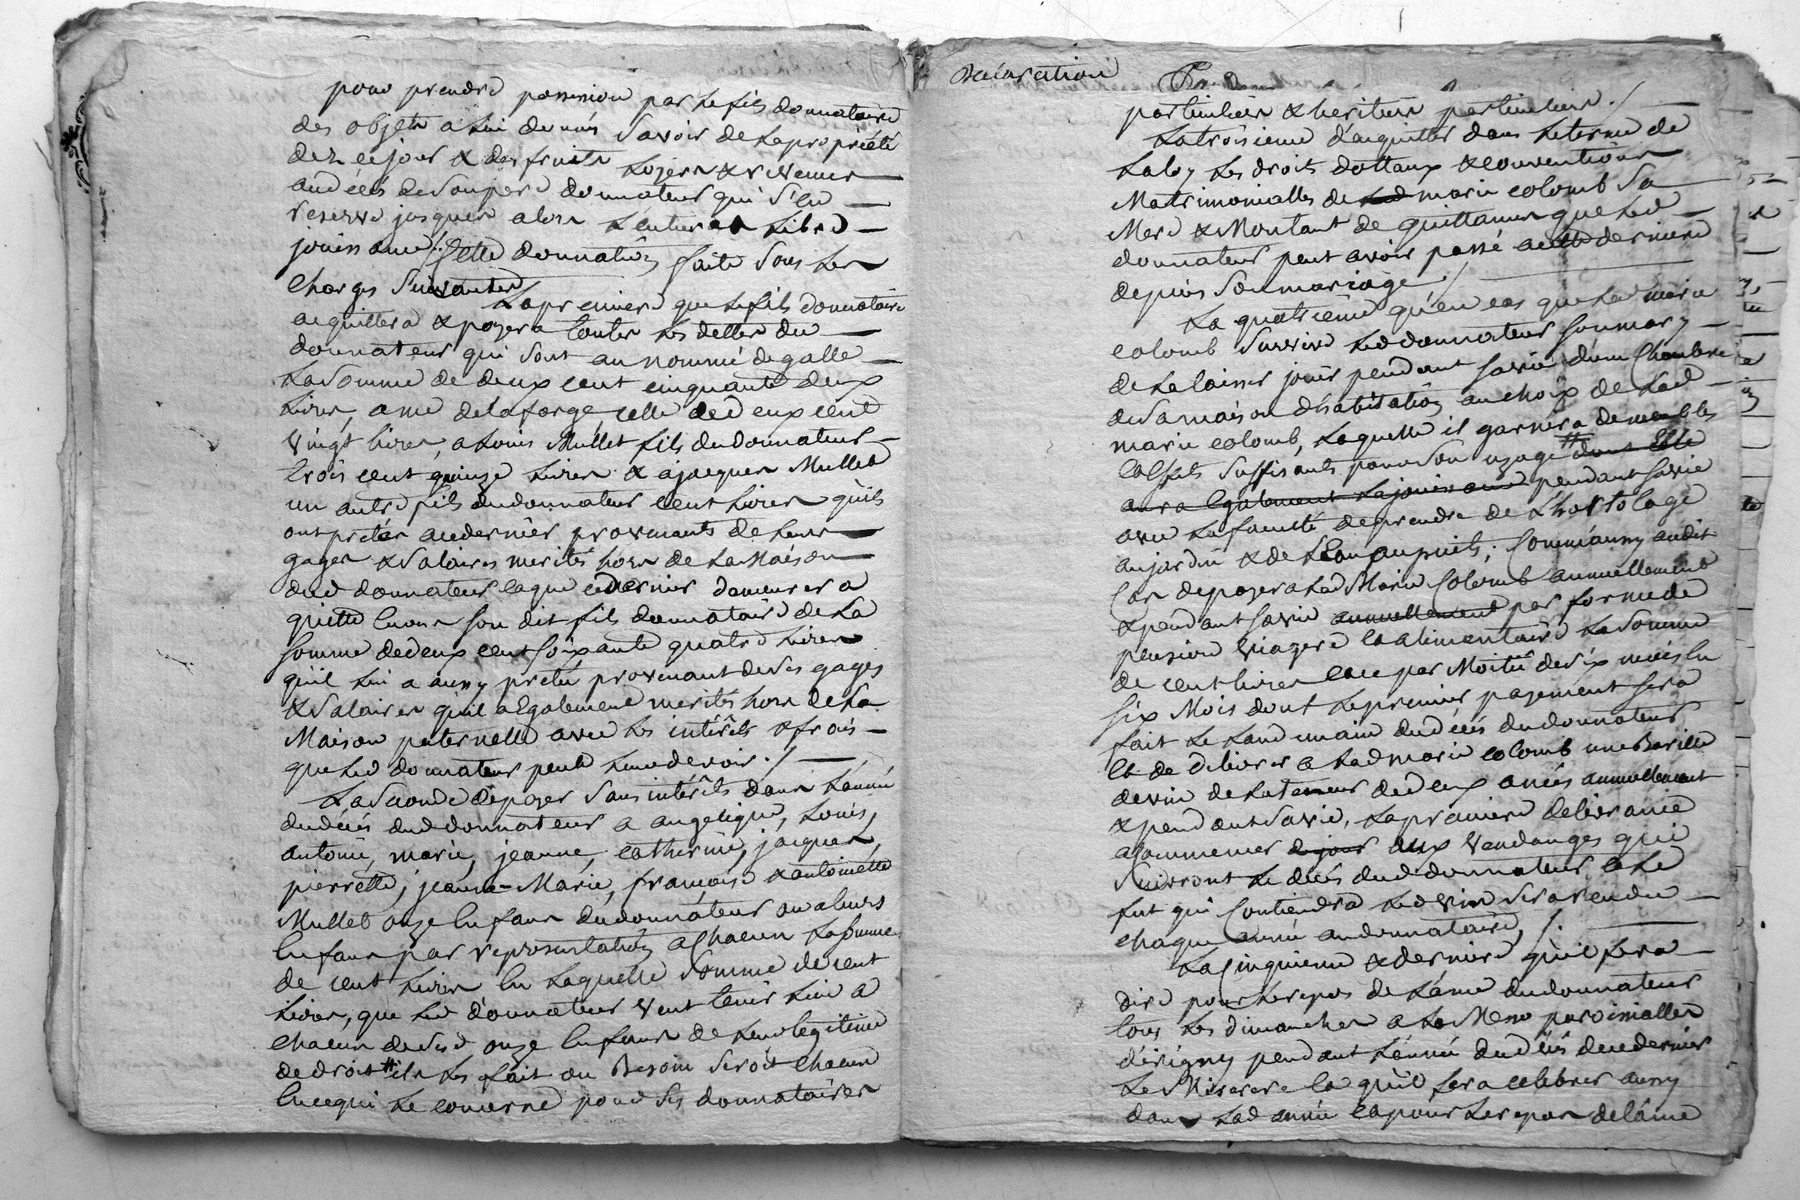 pour prendre possession par le fils donnataire
des objets a lui donnés Savoir de la propriété
dez ce jour & des fruits Loyers & revenus
au décès de Son pere donnateur qui S'en
reserve jusques alors L'entiere Libre
jouissance /. Cette donnation faite Sous les
Charges Suivantes
La premiere que le fils donnataire
acquittera & payera toutes les dettes du
donnateur qui sont au nommé degalle
La Somme de deux cent cinquante deux
Livres, a me delaforge celle de deux cent
vingt livres, a Louis Mullet fils dud donnateur
trois cent quinze Livres & a jacques Mullet
un autre fils dud donnateur cent Livres qu'ils
ont pretés a ce dernier provenants de leurs
gages & Salaires merités hors de la Maison
dud donnateur ce dernier demeurera
quitte Envers Son dit fils donnataire de la
Somme de deux cent Soixante quatre Livres
qu'il lui a aussy pretée provenant de Ses gages
& Salaires qu'il a Egalement merités hors de la
Maison paternelle avec les intérêts & frais
que led donnateur peut lui devoir. /.
La Seconde de payer Sans intérêts dans L'année
du décés dud donnateur a angelique, Louis,
antoine, marie, jeanne, catherine, jacques,
pierrette, jeanne-Marie, françoise & antoinette
Mullet onze Enfans dud donnateur ou a leurs
Enfans par representation a Chacun La Somme
de cent Livres En Laquelle Somme de cent
Livres, que led donnateur veut tenir Lieu a
Chacun de Sesd onze Enfans de leur legitime
de droit # il les fait au Besoin Seroit Chacun
En ce qui le concerne pour Ses donnataires
Declaration
particuliers & heritiers particuliers. /.
La troisieme d'acquitter dans le terme de
La loy Les droits dottaux & conventions
Matrimonialles de lad marie colomb Sa
Mere & Montant de quittances que led
donnateur peut avoir passé a cette derniere
depuis Son mariage /.
La quatrieme qu'en cas que lad marie
colomb Survive led donnateur Son mary
de la laisser jouir pendant Sa vie d'une Chambre
de Sa maison d'habitation au choix de lad
marie colomb, Laquelle il garnira de meubles
& Effets Suffisants pour Son uzage # dont Elle
aura Egalement La jouissance pendant Sa vie
avec La faculté de prendre de L'hortolage
au jardin & de L'eau au puits; Comm'aussy audit
Cas de payer a lad Marie Colomb annuellement
& pendant Sa vie annuellement par forme de
pension viagere & alimentaire La Somme
de cent livres Et ce par Moitié de Six mois En
Six Mois dont le premier payement Sera
fait Le Lendemain du décés dud donnateur
Et de delivrer a lad marie colomb une Barille
de vin de la teneur de deux anées annuellement
& pendant Sa vie, La premiere delivrance
a commencer ce jour aux Vendanges qui
Suivront Le décés dud donnateur & le
fut qui Contiendra led vin Sera rendu
chaque année au donnataire, /.
La Cinquieme & derniere qu'il fera
dire pour le repos de L'ame dud donnateur
tous les dimanches a la Messe paroissialle
d'érigny pendant L'année du décés de ce dernier
Le Miserere & qu'il fera celebrer aussy
dans lad année & pour le repos de l'ame